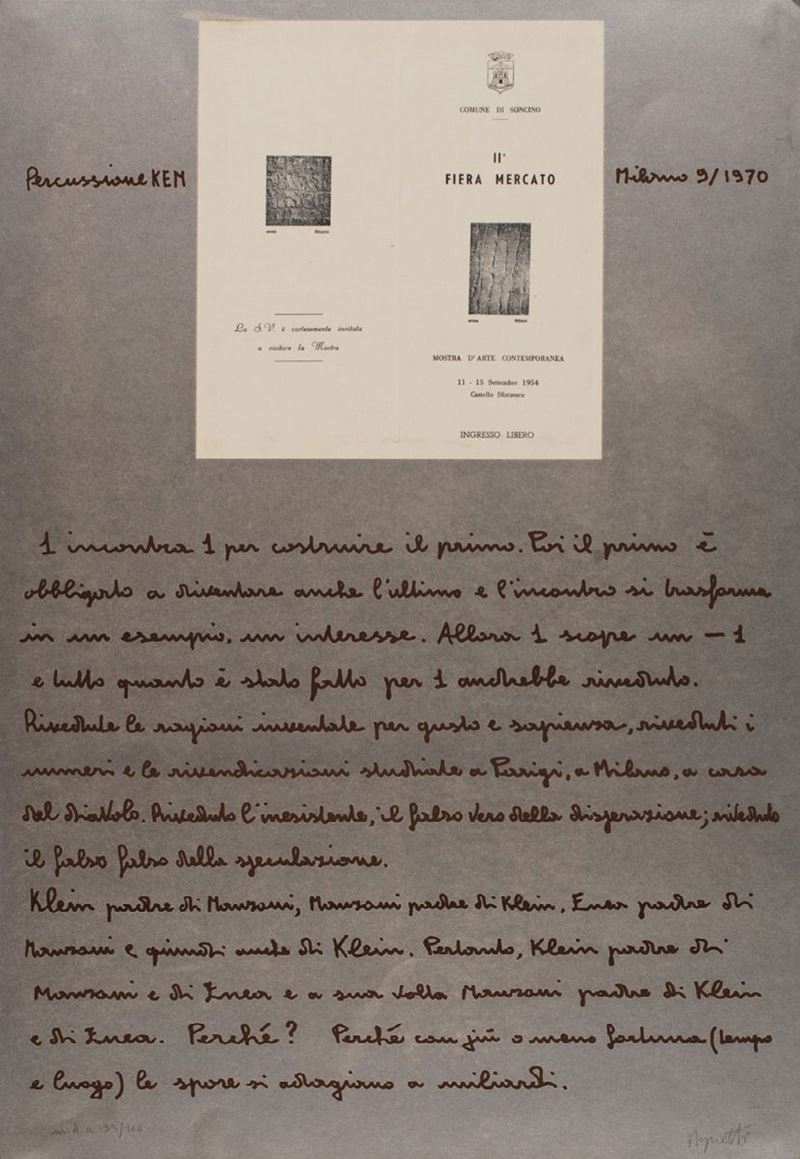 COMUNE DI SONCINO
II°
FIERA MERCATO
Percussione KEM
Milano 9/1970
enea
La S.V. è cortesemente invitata
a visitare la Mostra
enea
MOSTRA D'ARTE CONTEMPORANEA
11 - 15 Settembre 1954
Castello Sforzesco
INGRESSO LIBERO
1 incontra 1 per costruire il primo. Poi il primo è
obbligato a diventare anche l'ultimo e l'incontro si trasforma
in un esempio, un interesse. Allora 1 scopre un – 1
e tutto quanto è stato fatto per 1 andrebbe riveduto.
Rivedute le ragioni inventate per gusto e sapienza, riveduti i
numeri e le rivendicazioni studiate a Parigi, a Milano, a casa
del diavolo. Riveduto l'inesistente, il falso vero della disperazione; riveduto
il falso falso della speculazione.
Klein padre di Manzoni, Manzoni padre di Klein, Enea padre di
Manzoni e quindi anche di Klein. Pertanto, Klein padre di
Manzoni e di Enea e a sua volta Manzoni padre di Klein
e di Enea. Perché? Perché con più o meno fortuna (tempo
e luogo) le spore si adagiano a miliardi.
33/100
Agnetti